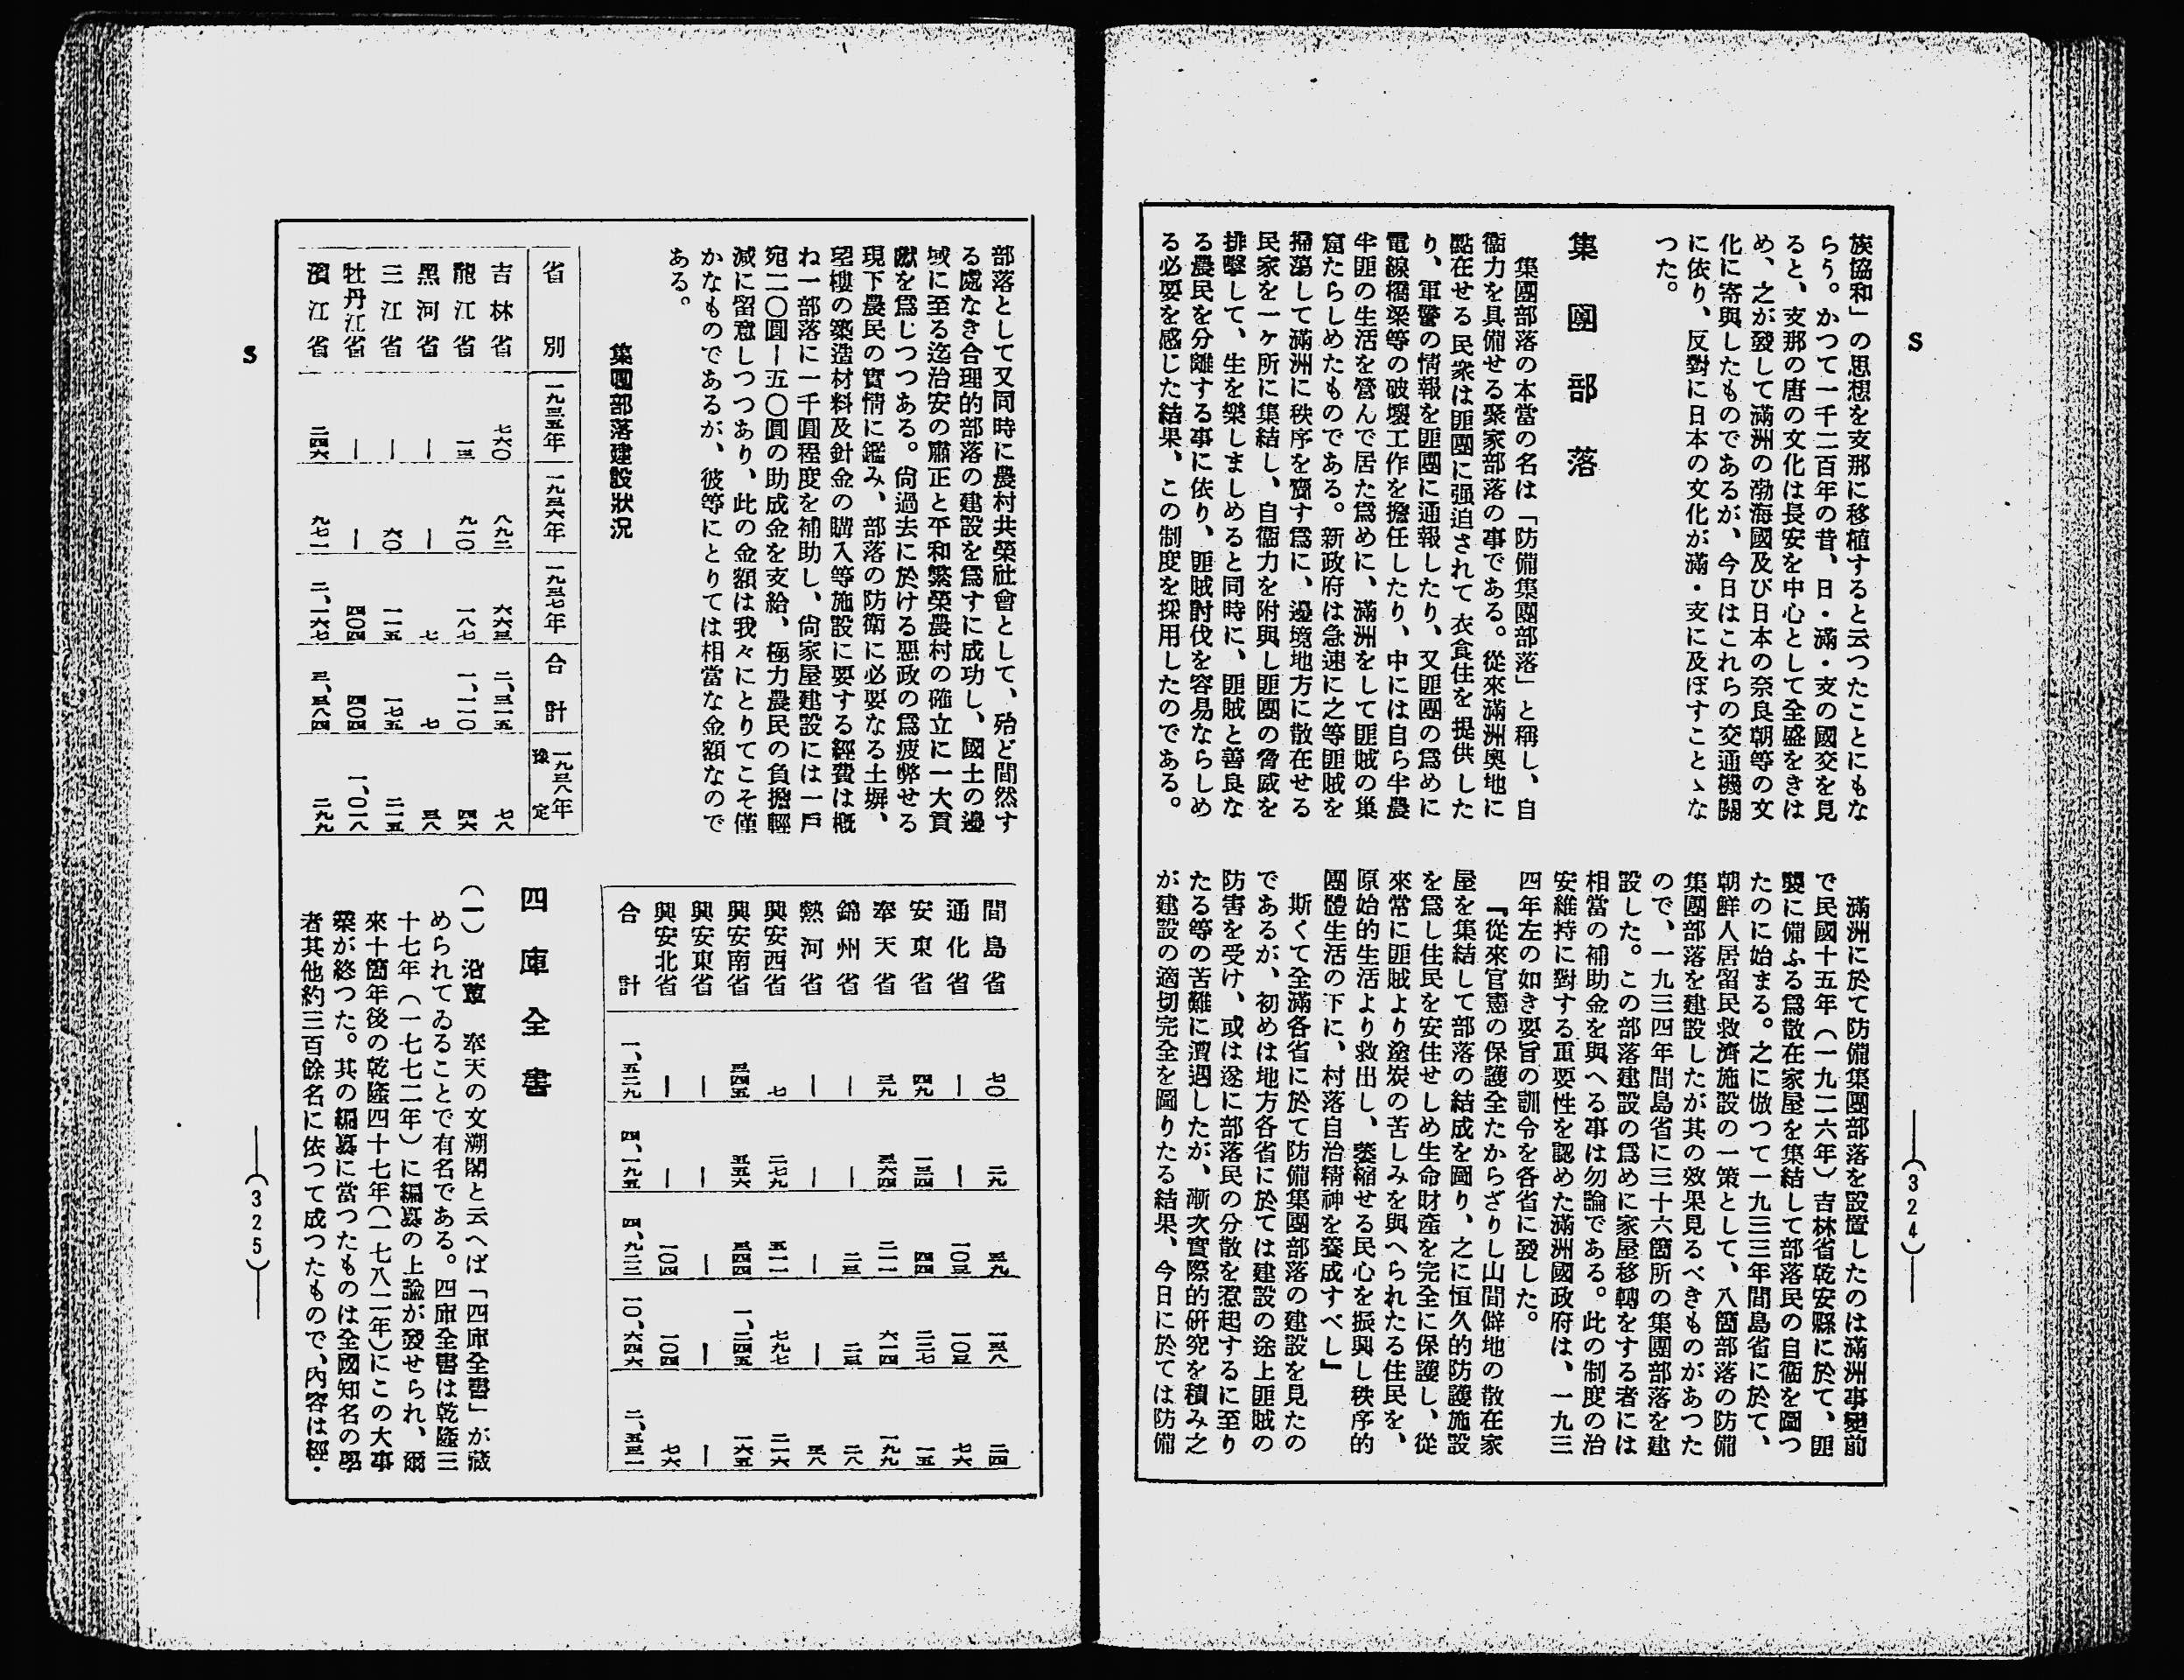 S
族協和」の思想を支那に移植すると云つたことにもな
らう。かつて一千二百年の昔、日・滿・支の國交を見
ると、支那の唐の文化は長安を中心として全盛をきは
め、之が發して滿洲の渤海國及び日本の奈良朝等の文
化に寄與したものであるが、今日はこれらの交通機關
に依り、反對に日本の文化が滿・支に及ぼすことゝな
つた。
集團部落
集團部落の本當の名は「防備集團部落」と稱し、自
衞力を具備せる聚家部落の事である。從來滿洲奧地に
點在せる民衆は匪團に强迫されて衣食住を提供した
り、軍警の情報を匪團に通報したり、又匪團の爲めに
電線橋梁等の破壞工作を擔任したり、中には自ら半農
半匪の生活を營んで居た爲めに、滿洲をして匪賊の巢
窟たらしめたものである。新政府は急速に之等匪賊を
掃蕩して滿洲に秩序を齎す爲に、邊境地方に散在せる
民家を一ヶ所に集結し、自衞力を附與し匪團の脅威を
排擊して、生を樂しましめると同時に、匪賊と善良な
る農民を分離する事に依り、匪賊討伐を容易ならしめ
る必要を感じた結果、この制度を採用したのである。
滿洲に於て防備集團部落を設置したのは滿洲事變前
で民國十五年（一九二六年）吉林省乾安縣に於て、匪
襲に備ふる爲散在家屋を集結して部落民の自衞を圖つ
たのに始まる。之に倣つて一九三三年間島省に於て、
朝鮮人居留民救濟施設の一策として、八箇部落の防備
集團部落を建設したが其の效果見るべきものがあつた
ので、一九三四年間島省に三十六箇所の集團部落を建
設した。この部落建設の爲めに家屋移轉をする者には
相當の補助金を與へる事は勿論である。此の制度の治
安維持に對する重要性を認めた滿洲國政府は、一九三
四年左の如き要旨の訓令を各省に發した。
『從來官憲の保護全たからざりし山間僻地の散在家
屋を集結して部落の結成を圖り、之に恒久的防護施設
を爲し住民を安住せしめ生命財產を完全に保護し、從
來常に匪賊より塗炭の苦しみを與へられたる住民を、
原始的生活より救出し、萎縮せる民心を振興し秩序的
團體生活の下に、村落自治精神を養成すべし』
斯くて全滿各省に於て防備集團部落の建設を見たの
であるが、初めは地方各省に於ては建設の途上匪賊の
防害を受け、或は遂に部落民の分散を惹起するに至り
たる等の苦難に遭遇したが、漸次實際的硏究を積み之
が建設の適切完全を圖りたる結果、今日に於ては防備
(324)
部落として又同時に農村共榮社會として、殆ど間然す
る處なき合理的部落の建設を爲すに成功し、國土の邊
域に至る迄治安の肅正と平和繁榮農村の確立に一大貢
獻を爲しつつある。尙過去に於ける惡政の爲疲弊せる
現下農民の實情に鑑み、部落の防衞に必要なる土塀、
望樓の築造材料及針金の購入等施設に要する經費は槪
ね一部落に一千圓程度を補助し、尙家屋建設には一戶
宛二〇圓ー五〇圓の助成金を支給、極力農民の負擔輕
減に留意しつつあり、此の金額は我々にとりてこそ僅
かなものであるが、彼等にとりては相當な金額なので
ある。
集團部落建設狀況
省別 一九三五年 一九三六年 一九三七年 合計 一九三八年豫定
吉林省 七六〇 八九二 六六三 二、三一五 七八
龍江省 一三 九一〇 一八七 一、一一〇 四六
黑河省 ー ー 七 七 三八
三江省 ー 六〇 一一五 一七五 二一五
牡丹江省 ー ー 四〇四 四〇四 一、〇一八
濱江省 二四六 九七一 二、一六七 三、三八四 二九九
間島省 七〇 二九 三九 一三八 二四
通化省 ー ー 一〇三 一〇三 七六
安東省 四九 一三四 四四 二二七 一五
奉天省 三九 三六四 二一一 六一四 一九九
錦州省 ー ー 二三 二三 二八
熱河省 ー ー ー ー 三八
興安西省 七 二七九 五一一 七九七 二一六
興安南省 三四五 五五六 三四四 一、二四五 一六五
興安東省 ー ー ー ー ー
興安北省 ー ー 一〇四 一〇四 七六
合計 一、五二九 四、一九五 四、九二二 一〇、六四六 二、五三一
四庫全書
(一) 沿革 奉天の文溯閣と云へば「四庫全書」が藏
められてゐることで有名である。四庫全書は乾隆三
十七年（一七七二年）に編纂の上諭が發せられ、爾
來十箇年後の乾隆四十七年(一七八二年)にこの大事
業が終つた。其の編纂に當つたものは全國知名の學
者其他約三百餘名に依つて成つたもので、內容は經・
S
(325)